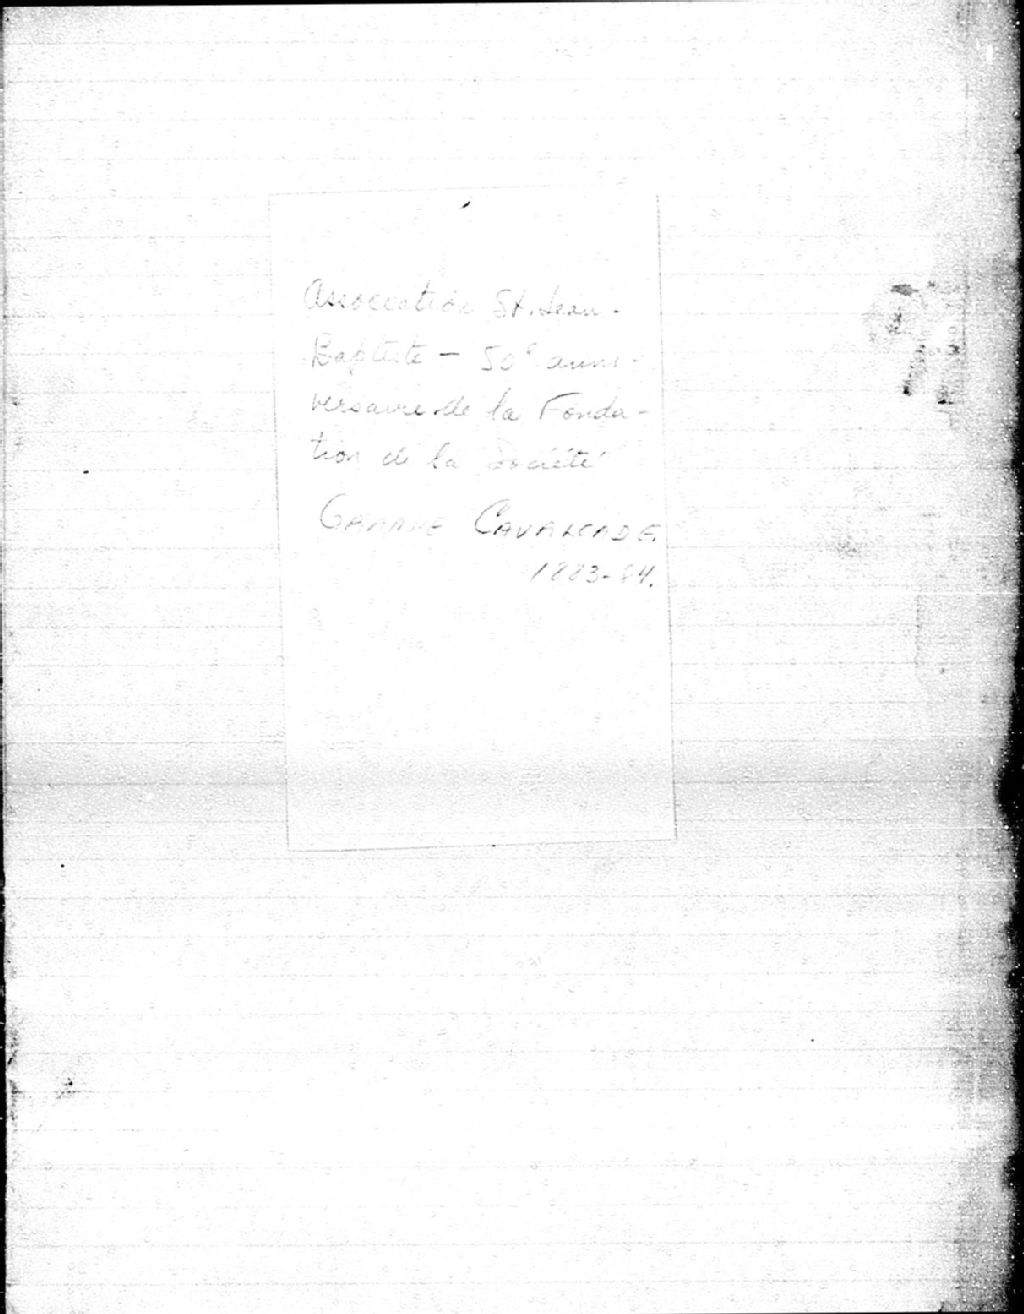 Association St. Jean-
Baptiste — 50e anni-
versaire de la Fonda-
tion de la Société
GRANDE CAVALCADE
1883-84.